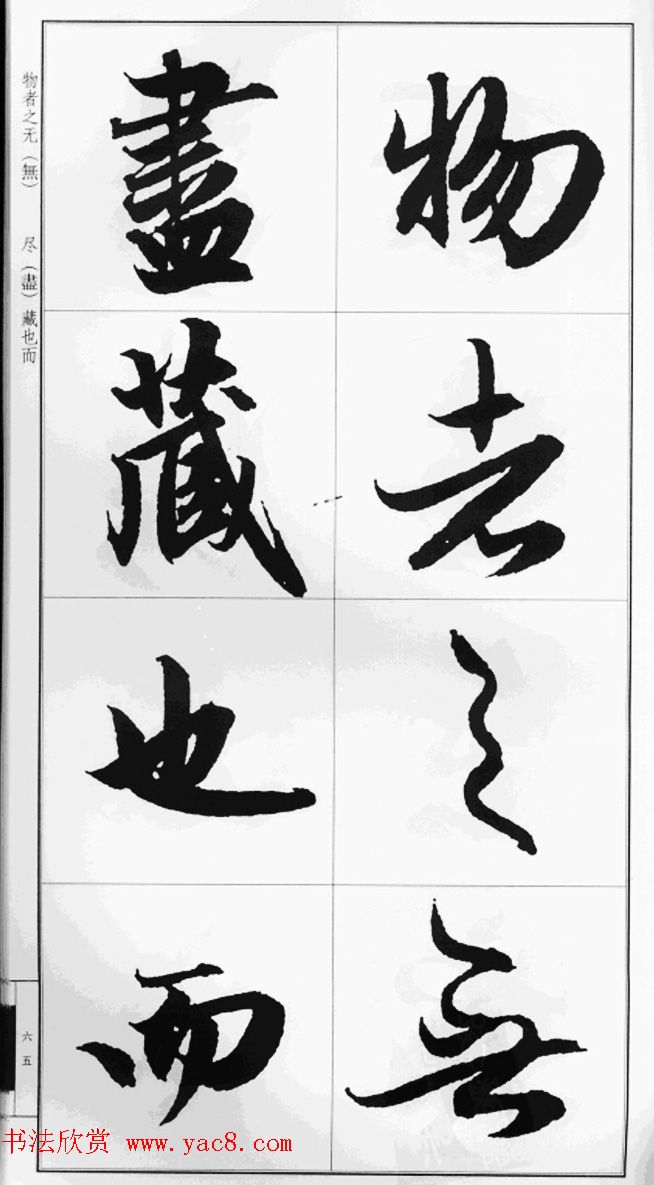 物者之無
盡藏也而
物者之无（無） 尽（盡）藏也而
六五
书法欣赏 www.yac8.com